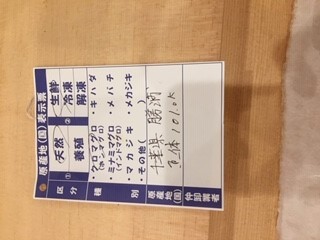 原産地(国)表示票
区分 ① 天然 養殖 ② 生鮮 冷凍 解凍
種別
・クロマグロ (ホンマグロ) ・キハダ
・ミナミマグロ (インドマグロ) ・メバチ
・マカジキ ・メカジキ
・その他( )
原産地(国) 千葉県 勝浦
101.0k
仲卸業者